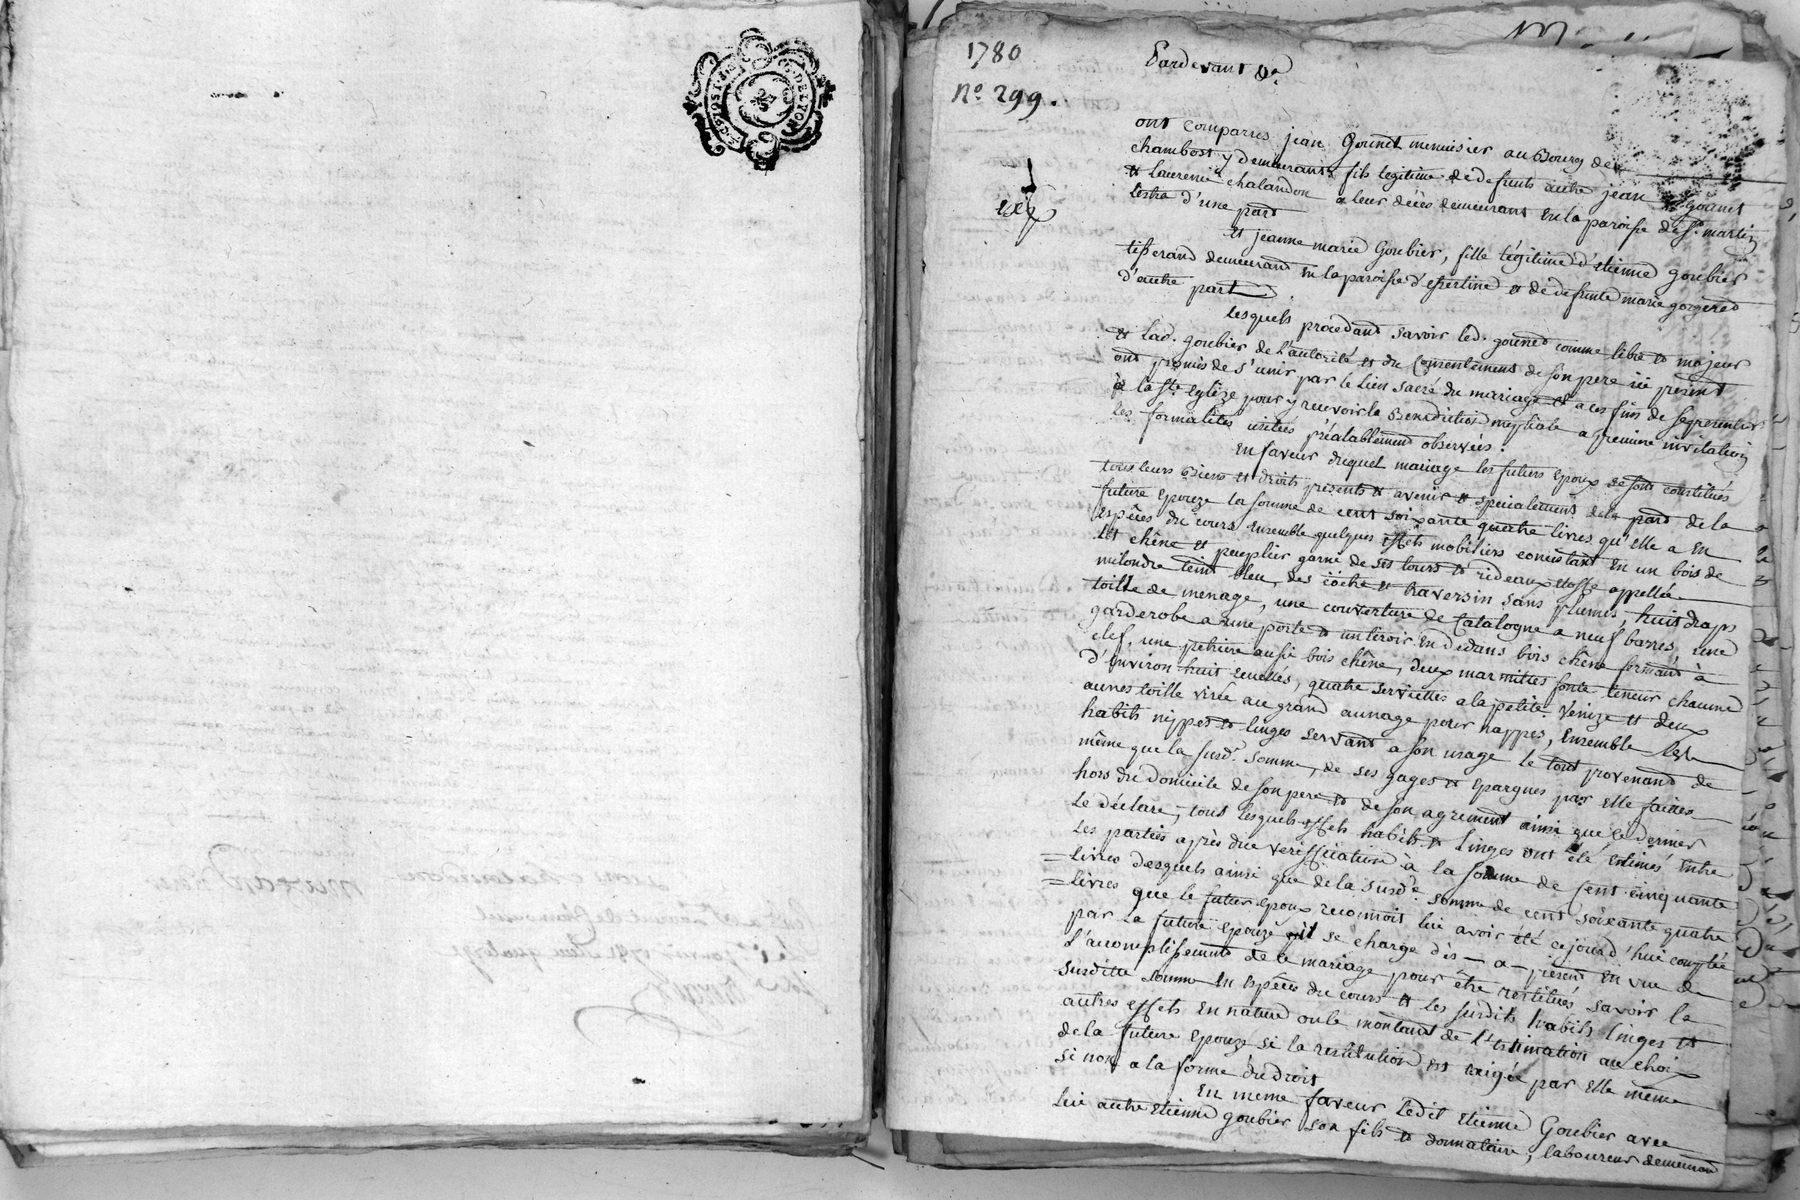 1780
N.º 299.
Pardevant &a
ont comparus jean Gounet menuisier au Bourg de
chambost y demeurant, fils legitime de defunts autre jean gounet
& laurence chalandon a leur décès demeurant en la paroisse de St. martin
lestra d'une part
Exp
Et jeanne marie Goubier, fille légitime d'Etienne goubier
tisserand demeurant en la paroisse d'essertine & de defunte marie gorgeret
d'autre part
lesquels procedant savoir led. gounet comme libre & majeur
& lad. goubier de l'autorité et du Consentement de son pere ici présent
ont promis de s'unir par le lien sacré du mariage & a ces fins de se présenter
à la Ste Eglize pour y recevoir la Benediction nuptiale a premiere invitation
les formalités usitées préalablement observées.
En faveur duquel mariage les futurs Epoux se sont constitués
tous leurs Biens et droits présents & avenir & specialement de la part de la
future Epouze la somme de cent soixante quatre livres qu'elle a en
Espêces du cours ensemble quelques effets mobiliers consistant en un bois de
lit chêne et peuplier garni de ses tours & rideaux étoffe appellée
milondre teint bleu, des coëtre & traversin sans plumes, huit draps
toille de menage, une couverture de Catalogne a neuf barres, une
garderobe a une porte & un tiroir en dedans bois chêne fermant à
clef, une pétriere aussi bois chêne, deux marmittes fonte teneur chacune
d'Environ huit ecuelles, quatre serviettes a la petite Venize et deux
aunes toille virée au grand aunage pour nappes, Ensemble les
habits nippes & linges servant a son usage le tout provenant de
même que la susd.e somme, de ses gages & Epargnes par elle faites
hors du domicile de son pere & de son agrément ainsi que ce dernier
le déclare, tous lesquels effets habits & linges ont été estimés entre
les parties après due verification à la somme de Cent cinquante
livres desquels ainsi que de la susd.e somme de cent soixante quatre
livres que le futur Epoux reconnoit lui avoir été cejourd'hui comptée
par la future Epouze il se charge dès-a-présent en vue de
l'accomplissement de ce mariage pour être restitués savoir la
susditte somme en Espêces du cours et les susdits habits linges et
autres effets En nature ou le montant de l'Estimation au choix
de la future Epouze si la restitution est exigée par elle même
si non a la forme du droit
En meme faveur ledit Etienne Goubier avec
lui autre Etienne goubier son fils & donnataire, laboureur demeurant